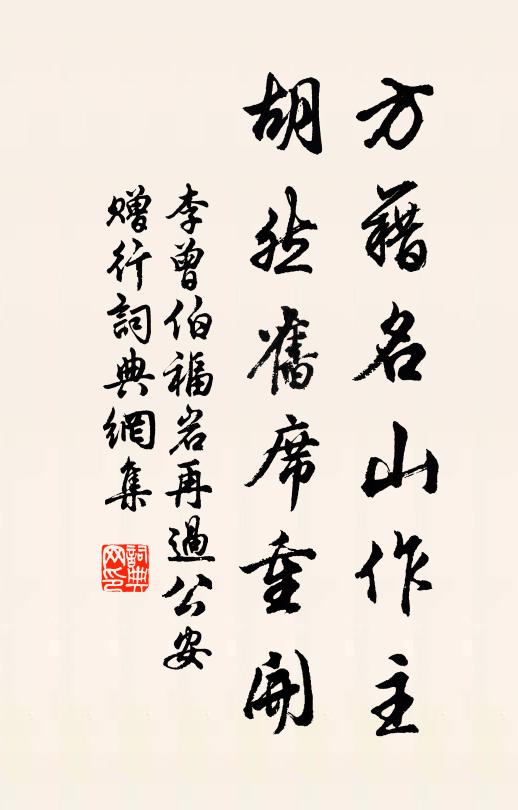 方藉名山作主
胡然舊席重開
李曾伯福岩再過公安
贈行詞典網集
詞典網印